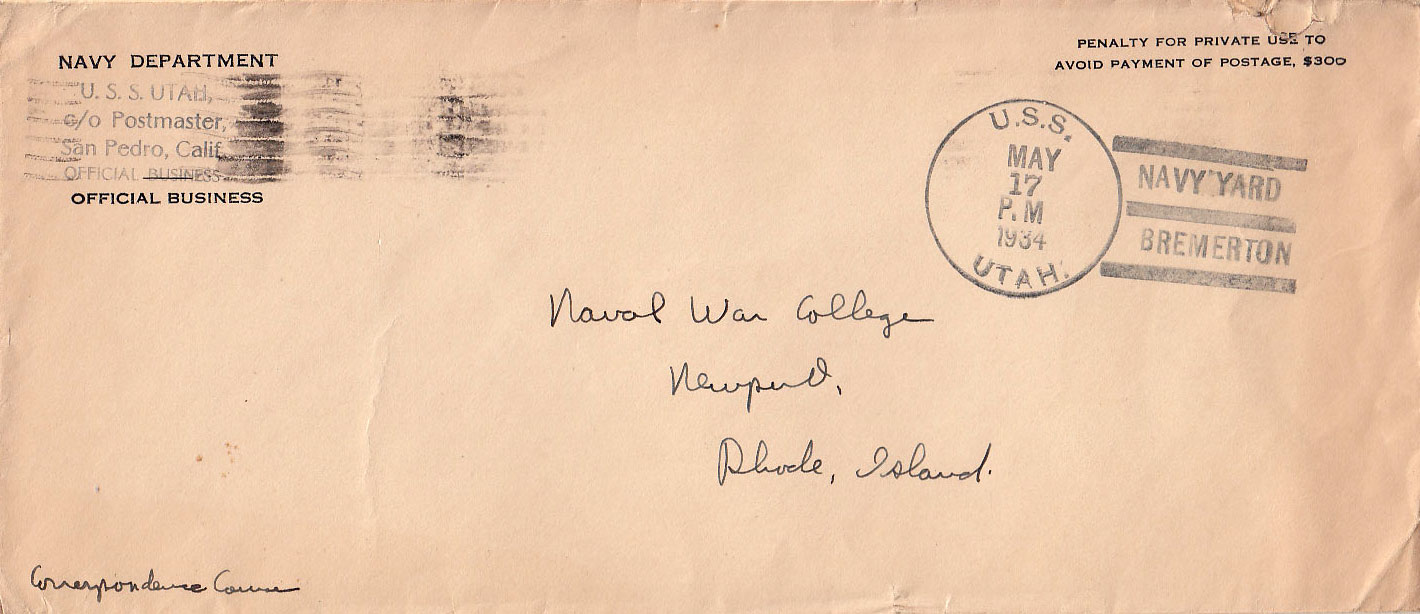 NAVY DEPARTMENT
U. S. S. UTAH,
c/o Postmaster,
San Pedro, Calif
OFFICIAL BUSINESS
OFFICIAL BUSINESS
PENALTY FOR PRIVATE USE TO
AVOID PAYMENT OF POSTAGE, $300
U.S.S.
MAY
17
P.M
1934
UTAH.
NAVY YARD
BREMERTON
Naval War College
Newport,
Rhode, Island.
Correspondence Course